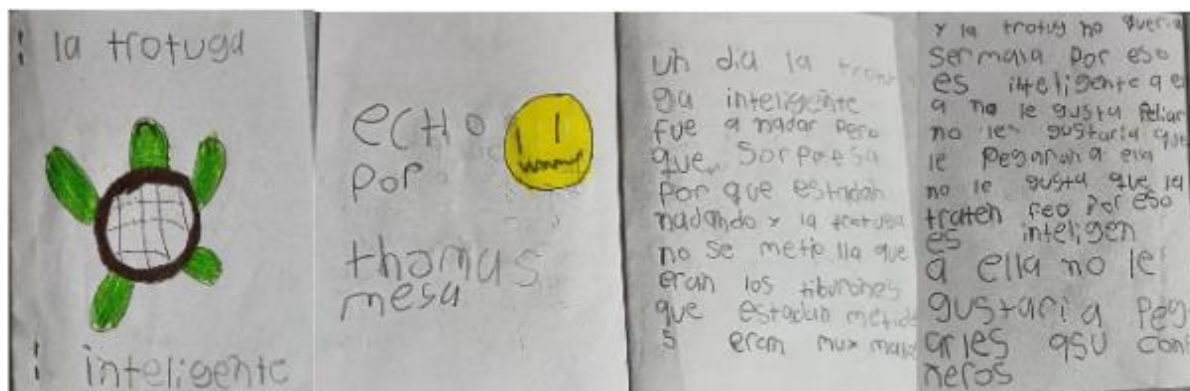 la trotuga
inteligente
ecHo
por
thomas
mesa
un dia la
ga inteligente
fue a nadar pero
que sorpresa
por que estadan
nadando y la trotuga
no se metio lla que
eran los tiburones
que estadan metido
s eran muy malo
y la trotug no queria
ser mala por eso
es inteligente a e
a no le gusta peliar
no les gustaria que
le pegaran a ella
no le gusta que la
traten feo por eso
es inteligen
a ella no le
gustaria peg
arles asu com
neros